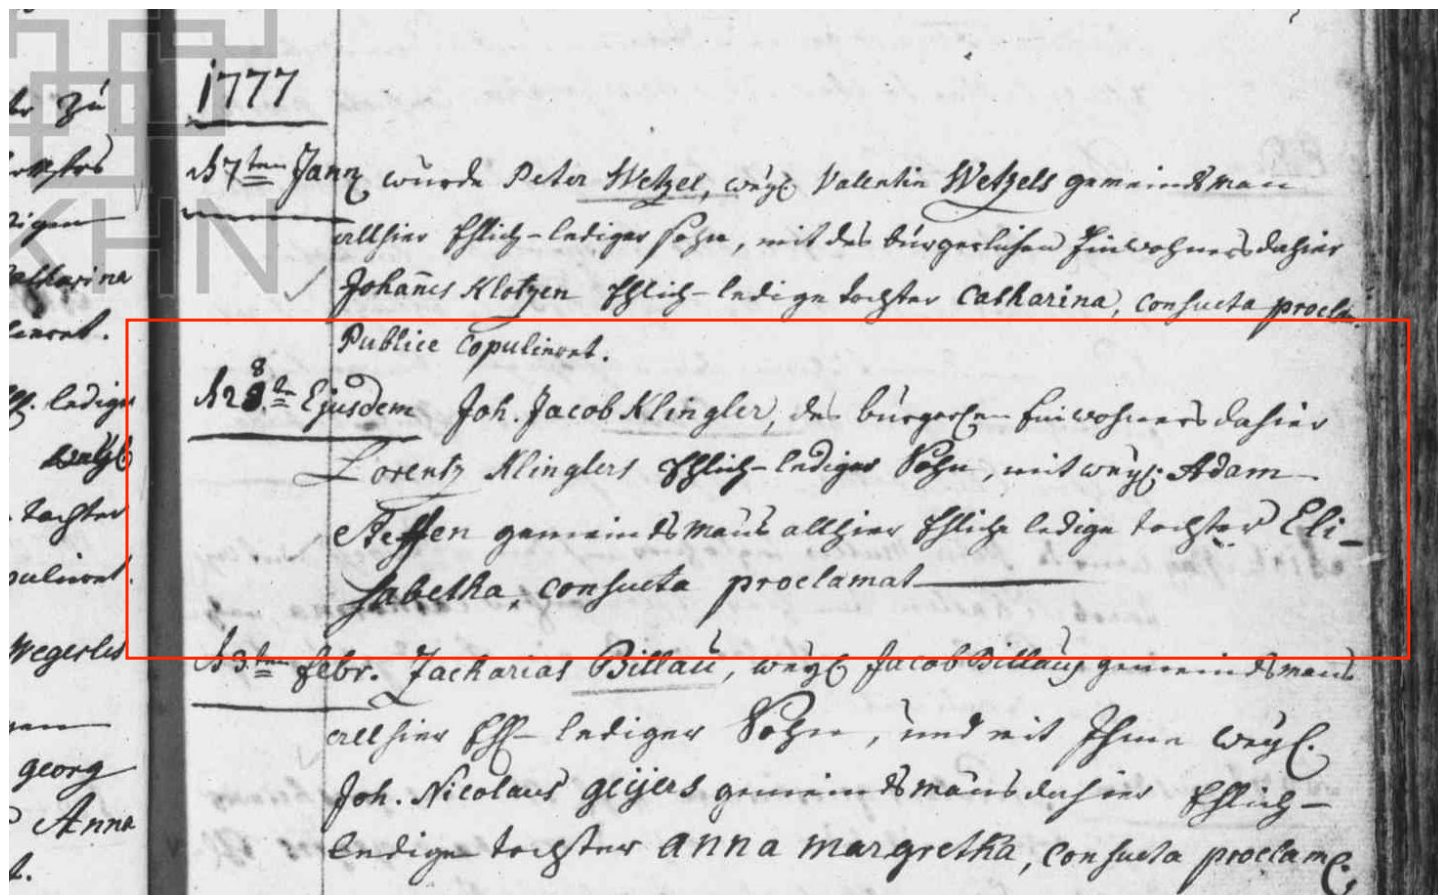 1777
d 7ten Janr wurde Peter Wetzel, weyl. Valentin Wetzels gemeindsman
allhier Ehlich-lediger Sohn, mit des bürgerlichen Einwohners dahier
Johanes Klotzen Ehlich-ledige tochter Catharina, consueta proclam.
Publice copuliret.
d 28.t Ejusdem Joh. Jacob Klingler, des bürgerlichen Einwohners dahier
Lorentz Klinglers Ehlich-lediger Sohn, mit weyl. Adam
Steffen gemeindsmans allhier Ehliche ledige tochter Eli-
sabetha, consueta proclamat
d 3ten febr. Zacharias Billau, weyl. Jacob Billaus gemeindsmans
allhier Ehl- lediger Sohn, und mit Ihme weyl.
Joh. Nicolaus geijers gemeindsmans dahier Ehlich-
ledige tochter anna margretha, consueta proclam.
zu
Catharina
ledige
weyl
tochter
Wegerles
georg
Anna
KHN